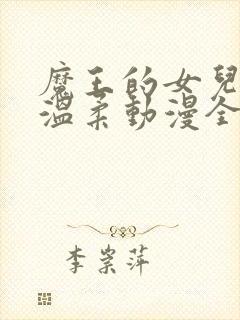 魔王的女兒
溫柔動漫全
李崇萍